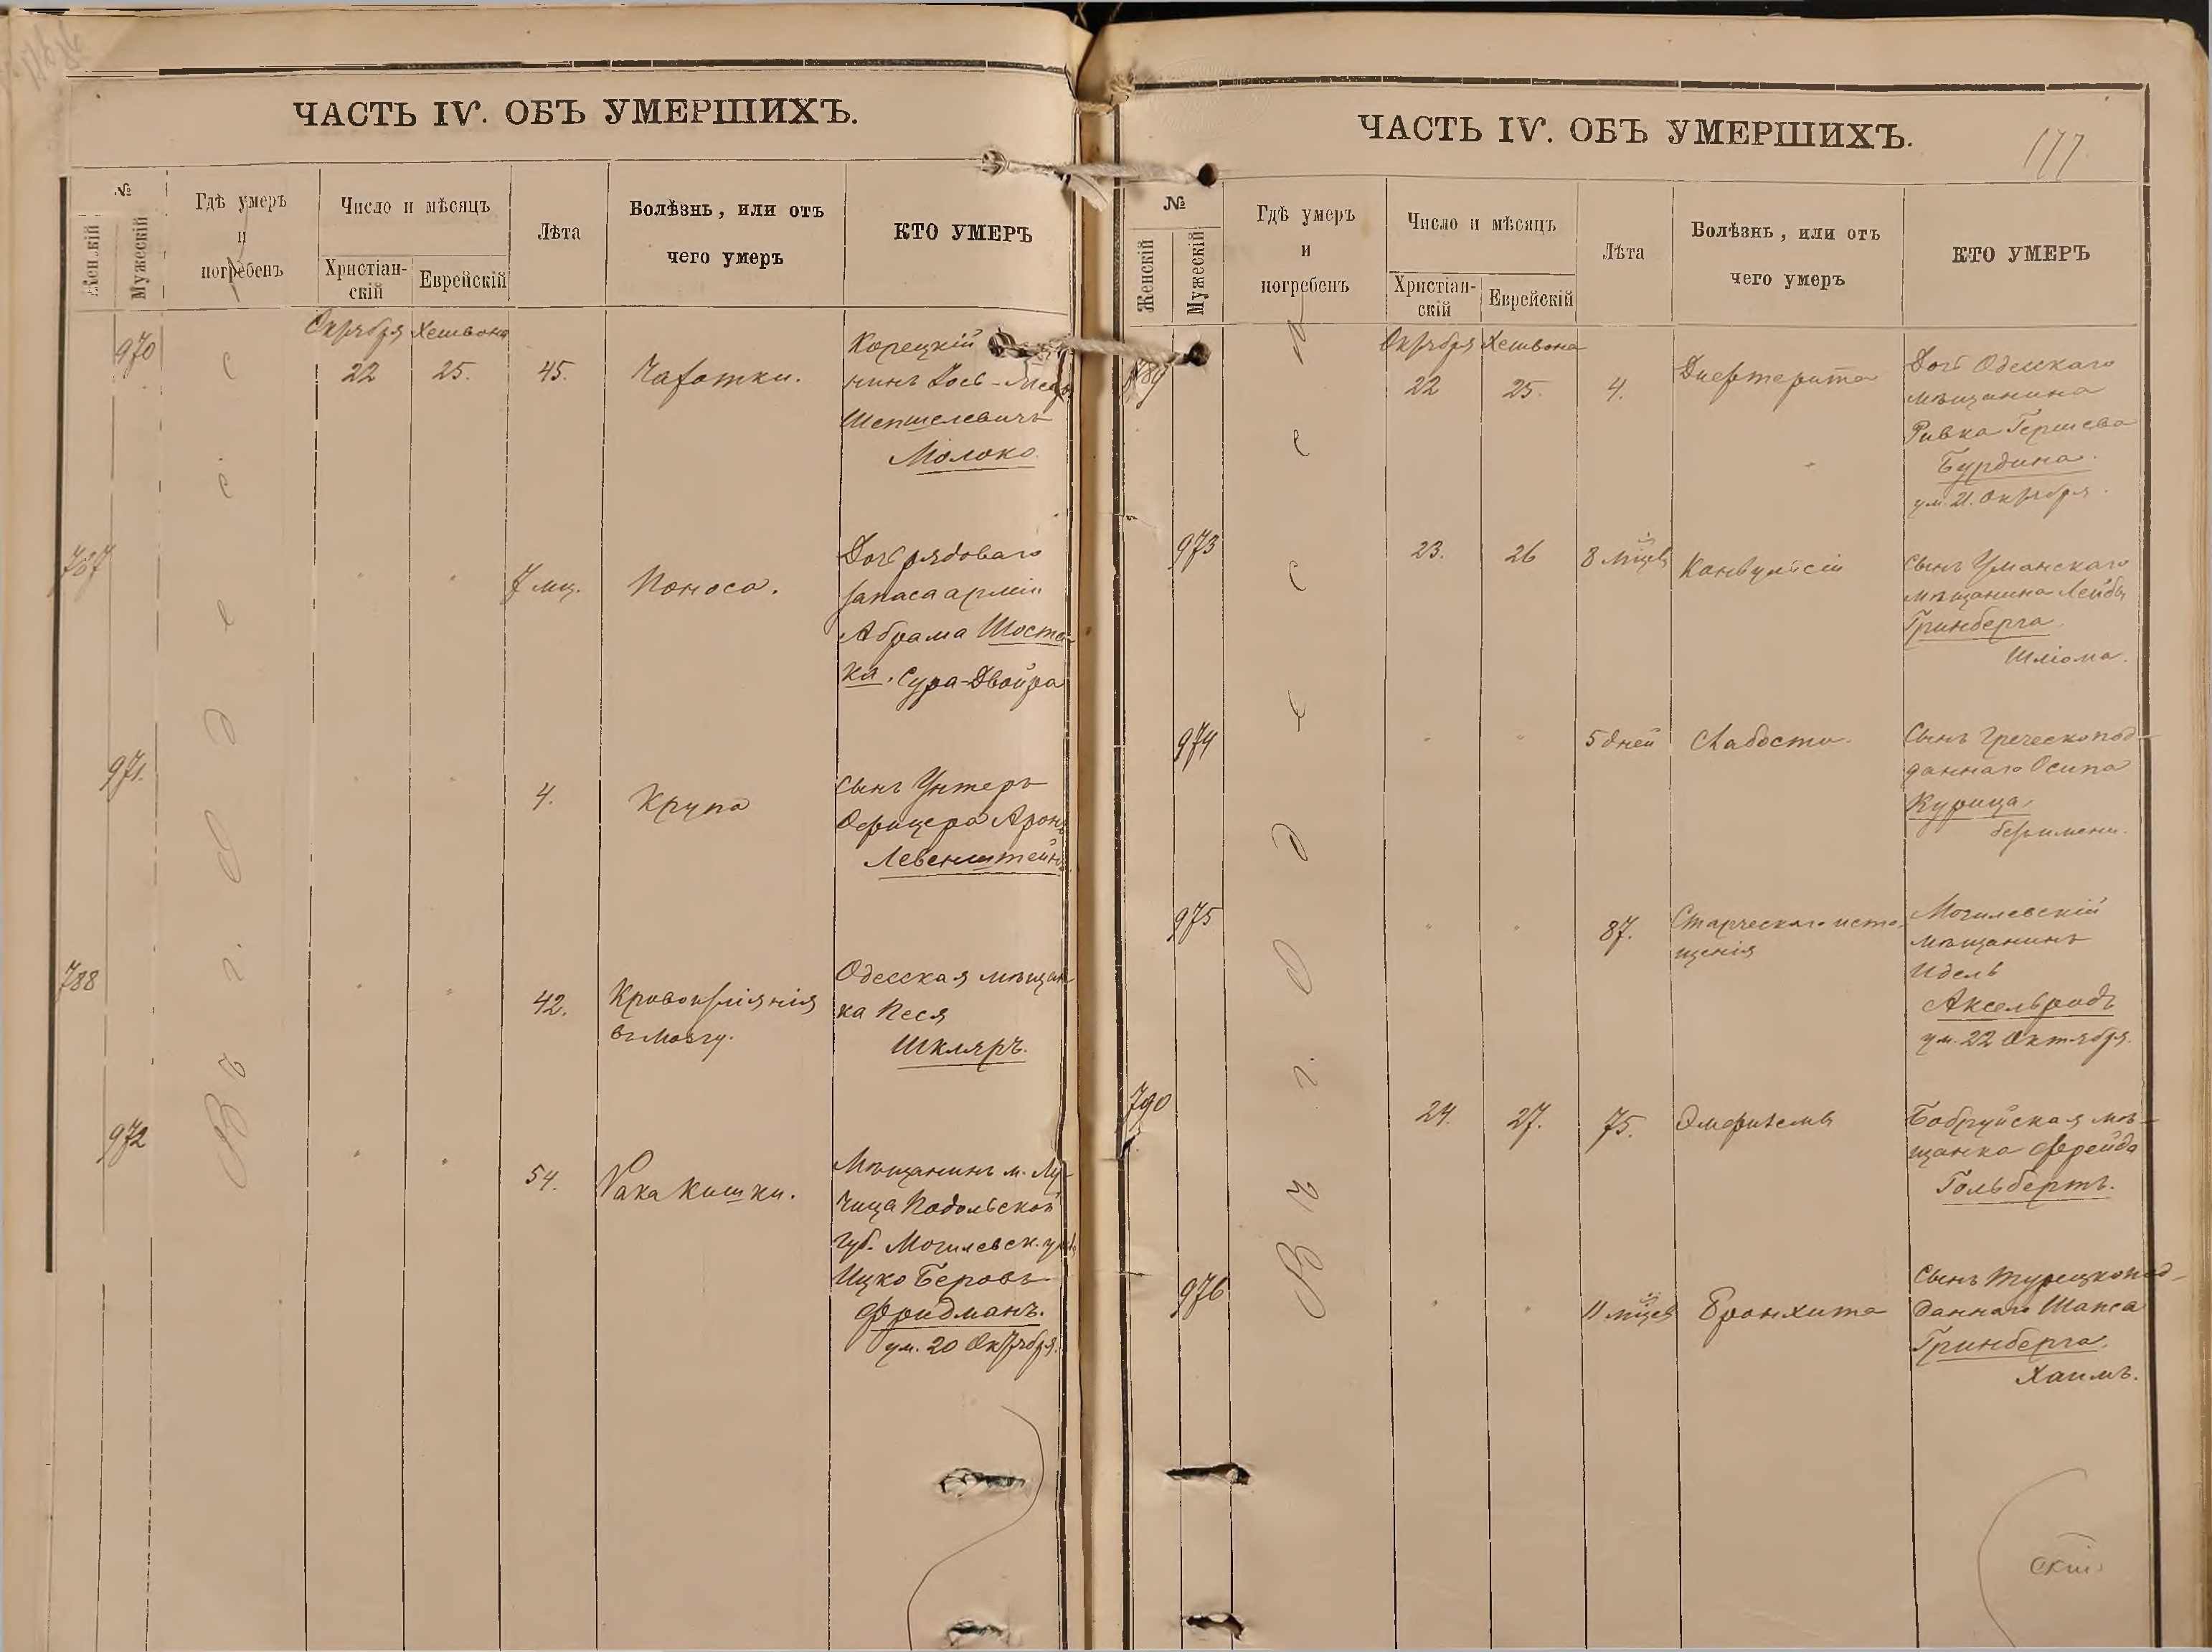 ЧАСТЬ IV. ОБЪ УМЕРШИХЪ.
№
Женскій
Мужескій
Гдѣ умеръ
и
погребенъ
Число и мѣсяцъ
Христіан-
скій
Еврейскій
Лѣта
Болѣзнь, или отъ
чего умеръ
КТО УМЕРЪ
Въ г. Одессѣ
Октября Хешвона
970
22 25. 45. Чахотки.
Корецкій
нинъ Іось-
Шепшелевичъ
Молоко.
787
" " 7 мц. Поноса.
Дочь рядоваго
запаса арміи
Абрама Шоста-
ка. Сура-Двойра
971.
" " 4. Крупа
Сынъ Унтеръ
Офицера Аронъ
Левенштейнъ
788
" " 42. Кровоизліянія
въ мозгу.
Одесская мѣщан
ка Песя
Шкляръ.
972
" " 54. Рака кишки.
Мѣщанинъ м. Лу-
чица Подольской
губ. Могилевск. уѣзд
Ицко Беровъ
Фридманъ.
ум. 20 Октября.
ЧАСТЬ IV. ОБЪ УМЕРШИХЪ.
177
№
Женскій
Мужескій
Гдѣ умеръ
и
погребенъ
Число и мѣсяцъ
Христіан-
скій
Еврейскій
Лѣта
Болѣзнь, или отъ
чего умеръ
КТО УМЕРЪ
Въ г. Одессѣ
Октября Хешвона
789
22 25. 4. Дифтерита
Дочь Одесскаго
мѣщанина
Ривка Гершева
Бурдина.
ум. 21. Октября.
973
23. 26 8 мѣцевъ Конвульсіи
Сынъ Уманскаго
мѣщанина Лейбы
Гринберга
Шліома.
974
" " 5 дней Слабости.
Сынъ Греческопод-
даннаго Осипа
Курица,
безъимени.
975
" " 87. Старческаго исто-
щенія
Могилевскій
мѣщанинъ
Идель
Аксельродъ
ум. 22 Октября.
790
24. 27. 75. Эмфиземы
Бобруйская мѣ-
щанка Фрейда
Гольбертъ.
976
" " 11 мѣцевъ Бронхита
Сынъ Турецкопод-
даннаго Шапса
Гринберга.
Хаимъ.
скій